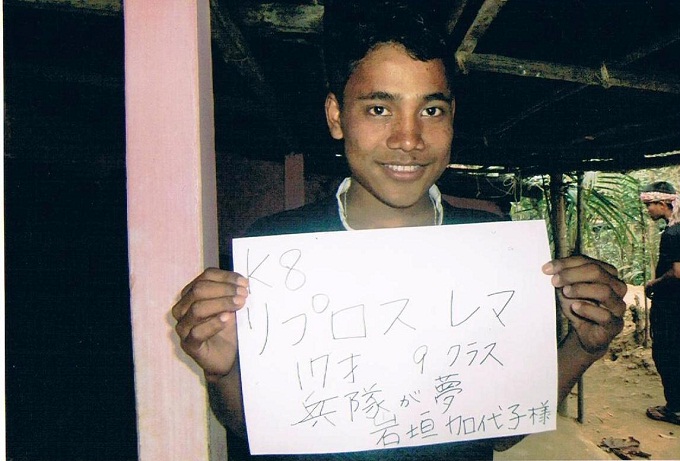 K8
リプロス レマ
17才 9 クラス
兵隊が夢
岩垣 加代子様